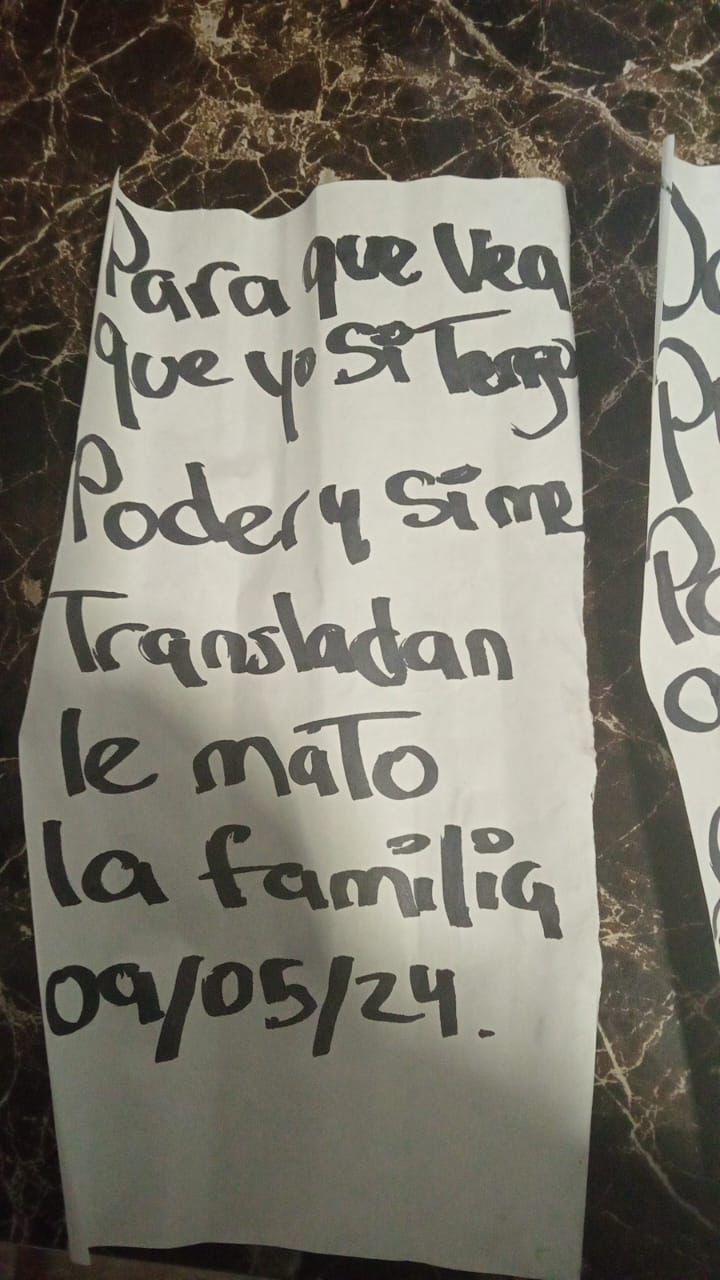 Para que Vea
que yo Si Tengo
Poder y Si me
Transladan
le maTo
la familia
09/05/24.